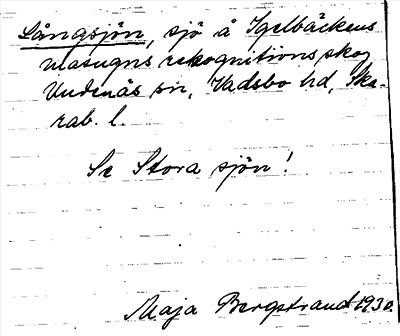 Långsjön, sjö å Igelbäckens
masugns rekognitionsskog
Undenäs sn, Vadsbo hd, Ska-
rab. l.
Se Stora sjön!
Maja Bergstrand 1930.